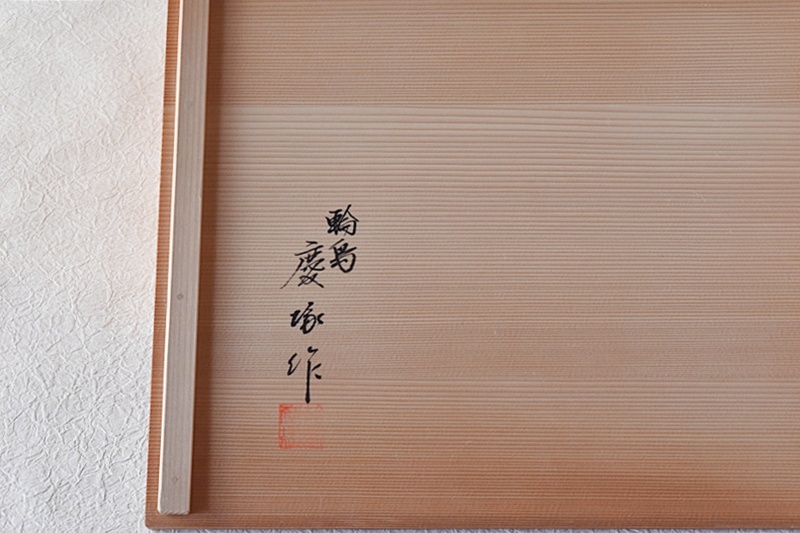 輪島
慶琢作